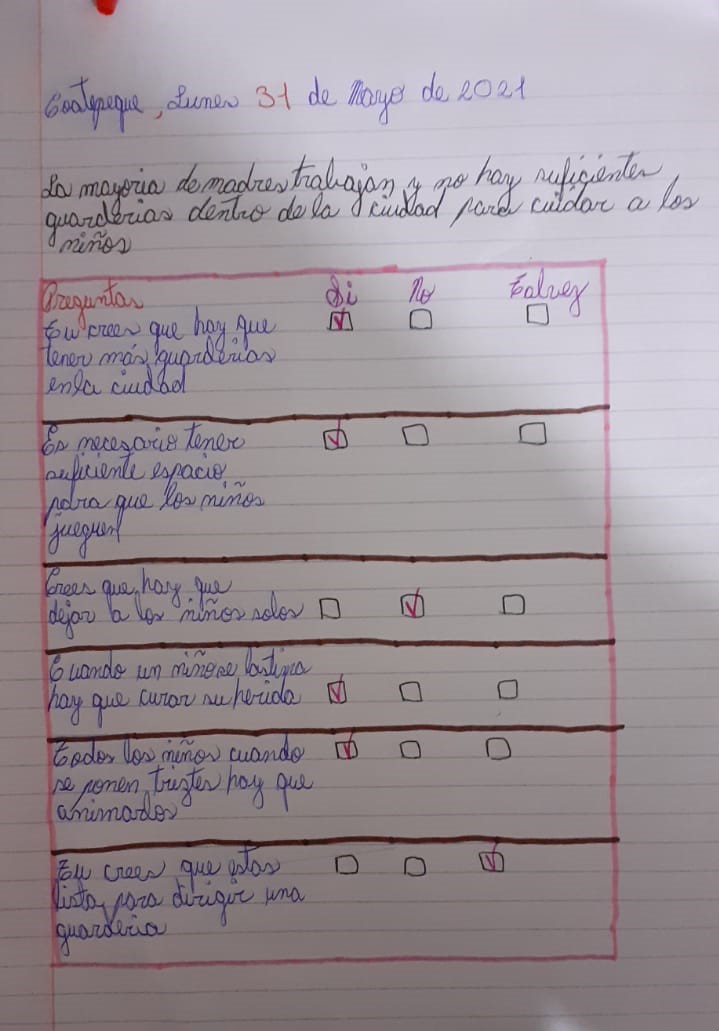 Coatepeque, Lunes 31 de Mayo de 2021
La mayoria de madres trabajan y no hay suficientes
guarderias dentro de la ciudad para cuidar a los
niños
Preguntas Si No Talvez
Tu crees que hay que
tener más guarderias
en la ciudad
Es necesario tener
suficiente espacio
para que los niños
jueguen
Crees que hay que
dejar a los niños solos
Cuando un niño se lastima
hay que curar su herida
Todos los niños cuando
se ponen triztes hay que
animarlos
Tu crees que estas
lista para dirigir una
guarderia